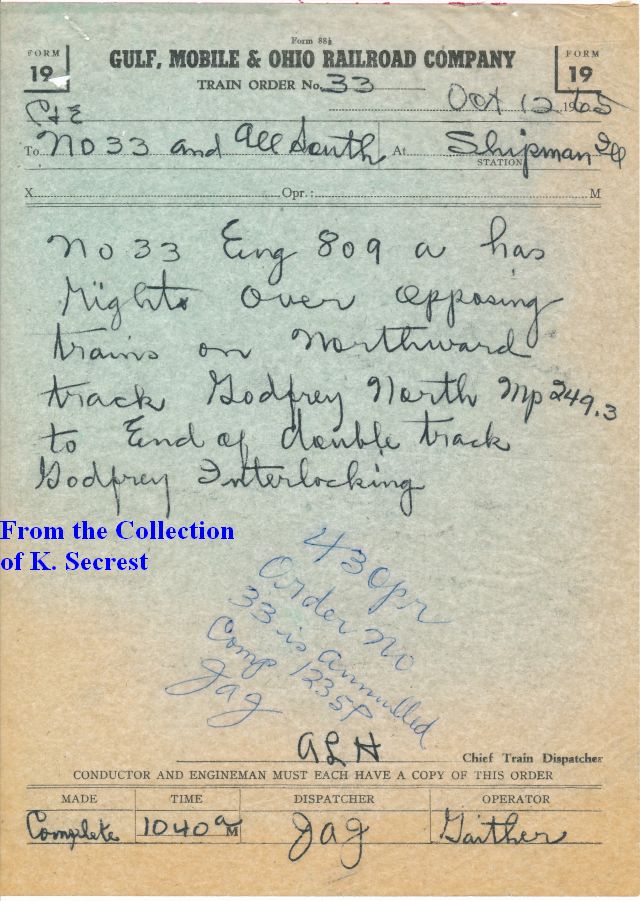 Form 88½
FORM 19
GULF, MOBILE & OHIO RAILROAD COMPANY
FORM 19
TRAIN ORDER No. 33
Oct 12 1965
C&E
To No 33 and All South At Shipman Ill
STATION
X Opr.: M
No 33 Eng 809 a has
Right over opposing
trains on Northward
track Godfrey North Mp 249.3
to End of double track
Godfrey Interlocking
From the Collection
of K. Secrest
Order no
33 is annulled
Comp 1235P
Jag
ALH Chief Train Dispatcher
CONDUCTOR AND ENGINEMAN MUST EACH HAVE A COPY OF THIS ORDER
MADE TIME DISPATCHER OPERATOR
Complete 1040a M Jag Gaither